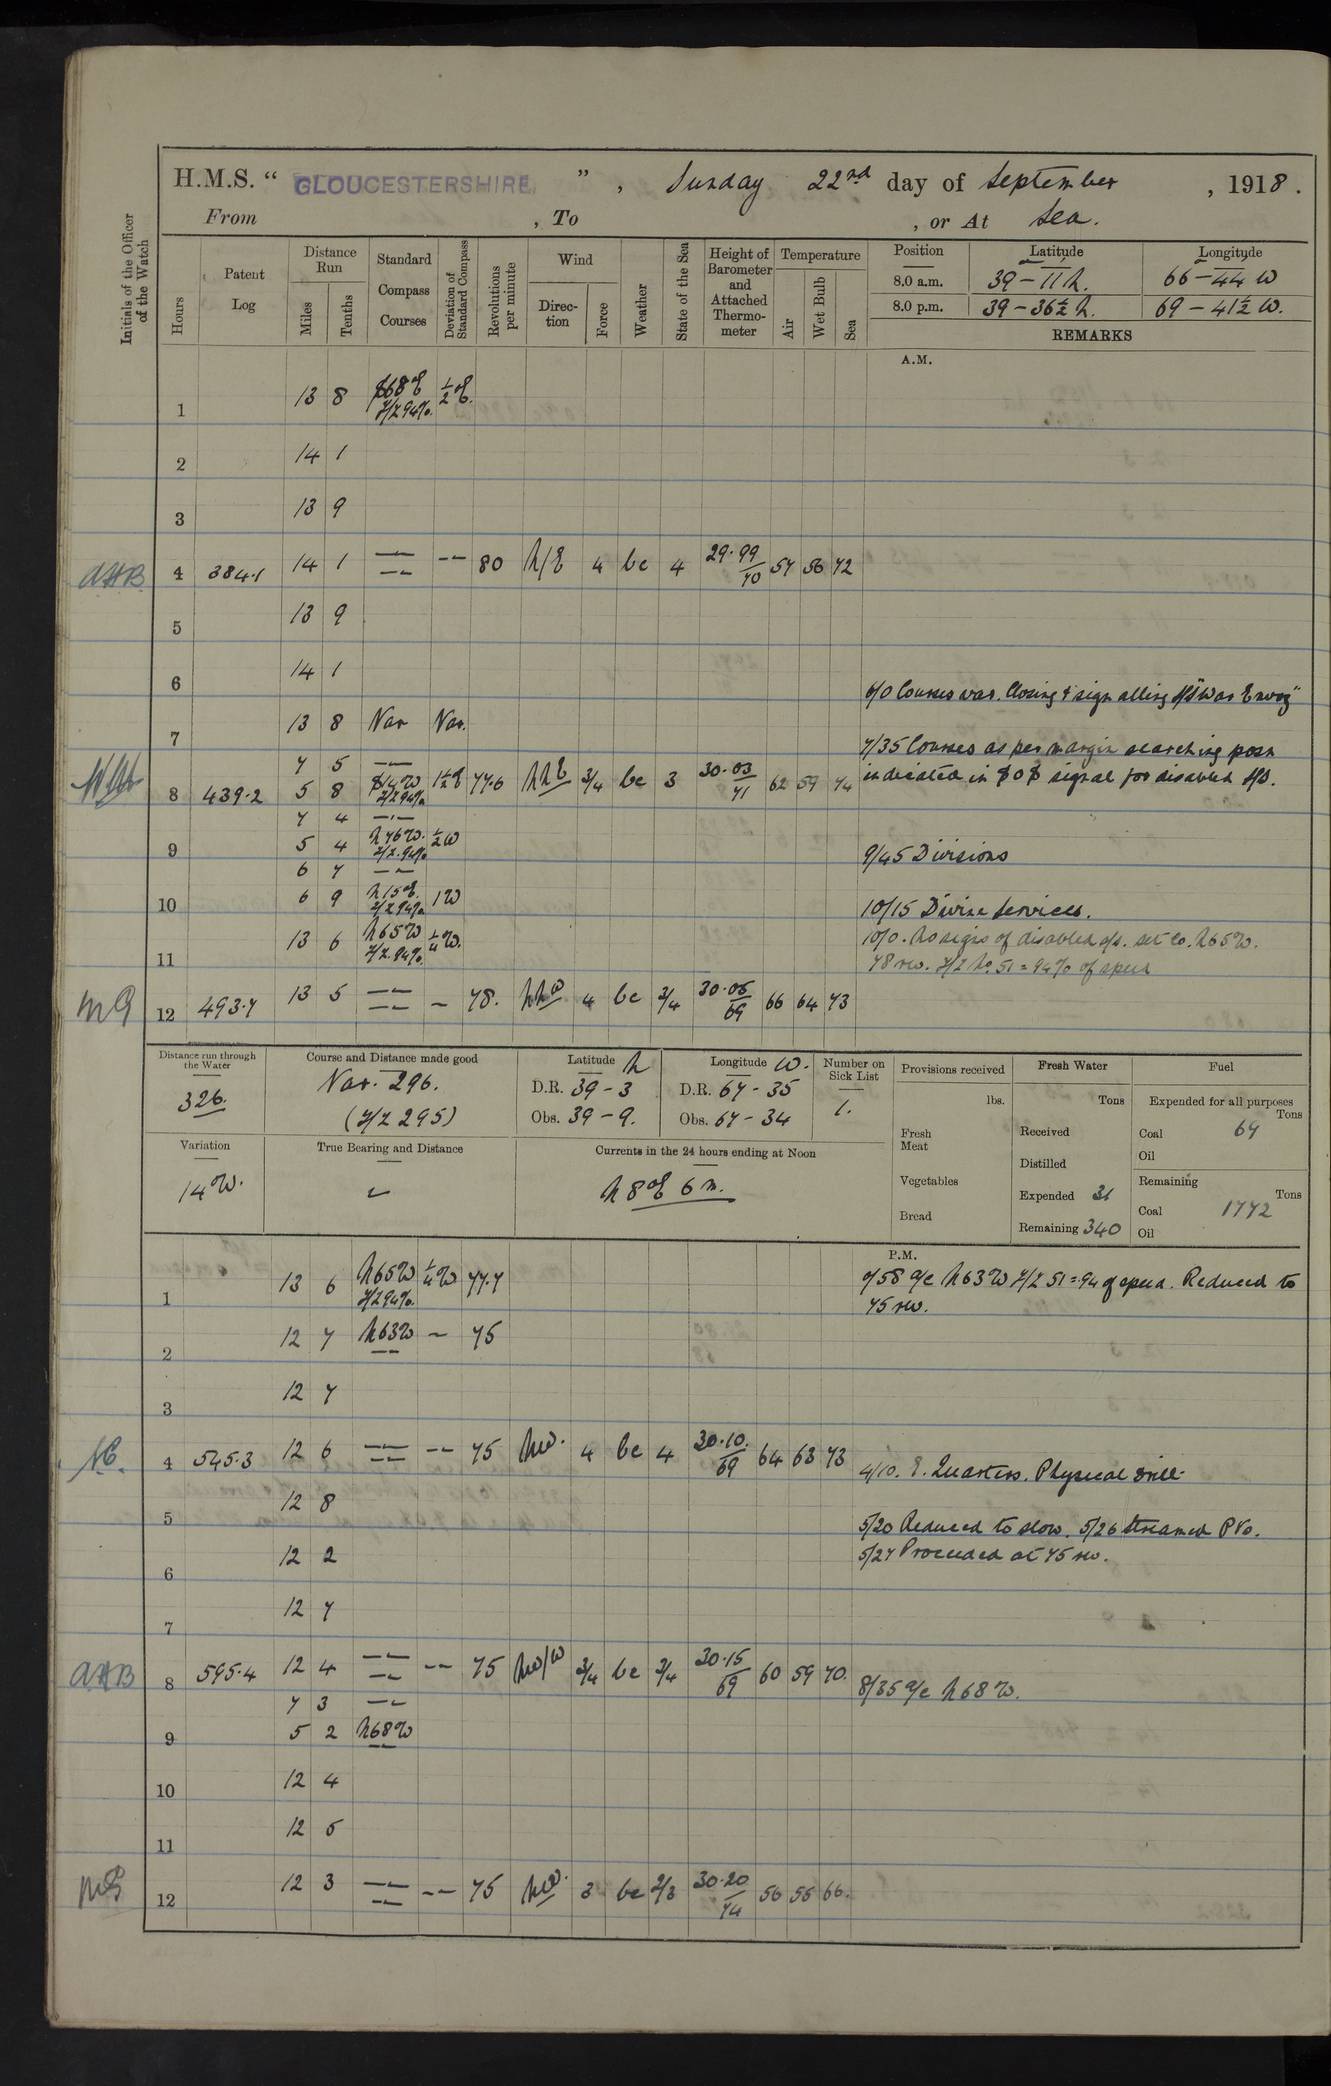 H.M.S. “ GLOUCESTERSHIRE ” , Sunday 22nd day of September , 1918 .
From , To , or At Sea.
Initials of the Officer of the Watch
Hours
Patent Log
Distance Run
Miles
Tenths
Standard Compass Courses
Deviation of Standard Compass
Revolutions per minute
Wind
Direction
Force
Weather
State of the Sea
Height of Barometer and Attached Thermometer
Temperature
Air
Wet Bulb
Sea
Position Latitude Longitude
8.0 a.m. 39 – 11 N. 66 – 44 W
8.0 p.m. 39 – 36½ N. 69 – 41½ W.
REMARKS
A.M.
1 13 8 S68E Z/Z 94%. ½E.
2 14 1
3 13 9
AHB 4 384.1 14 1 — — 80 N/E 4 bc 4 29.99/70 57 56 72
5 13 9
6 14 1
6/0 Courses var. Closing & signalling S/S "War Envoy"
7 13 8 Var Var.
7/35 Courses as per margin searching posn
7 5 —
indicated in SOS signal for disabled S/S.
8 439.2 5 8 S14W Z/Z 94% 1½E 77.6 NNE 3/4 bc 3 30.03/71 62 59 74
7 4 —
9 5 4 N76W. Z/Z. 94% ½W
9/45 Divisions
6 7 —
10 6 9 N15E. Z/Z 94% 1W
10/15 Divine Services.
11 13 6 N65W Z/Z. 94%. ¼W.
10/0. No signs of disabled S/S. set Co. N65W.
78 rev. Z/Z No. 51 = 94% of speed
MG 12 493.7 13 5 — – 78. NNW 4 bc 3/4 30.06/69 66 64 73
Distance run through the Water
326.
Course and Distance made good
Var. 296.
(Z/Z 295)
Latitude N
D.R. 39 – 3
Obs. 39 – 9.
Longitude W.
D.R. 67 – 35
Obs. 67 – 34
Number on Sick List
1.
Provisions received
lbs.
Fresh Meat
Vegetables
Bread
Fresh Water
Tons
Received
Distilled
Expended 31
Remaining 340
Fuel
Expended for all purposes
Tons
Coal 67
Oil
Remaining
Tons
Coal 1772
Oil
Variation
14W.
True Bearing and Distance
Currents in the 24 hours ending at Noon
N8E 6 m.
P.M.
1 13 6 N65W Z/Z 94%. ¼W 77.7
0/58 a/c N63W Z/Z 51 = 94 of speed. Reduced to
75 rev.
2 12 7 N63W – 75
3 12 7
4 545.3 12 6 — — 75 NW. 4 bc 4 30.10./69 64 63 73
4/10. E. Quarters. Physical drill.
5 12 8
5/20 Reduced to slow. 5/26 Streamed PVs.
6 12 2
5/27 Proceeded at 75 rev.
7 12 7
AHB 8 595.4 12 4 — — 75 NW/W 3/4 bc 3/4 30.15/69 60 59 70.
8/35 a/c N68W.
7 3 —
9 5 2 N68W
10 12 4
11 12 5
MG 12 12 3 — — 75 NW. 3 bc 2/3 30.20/74 56 55 66.